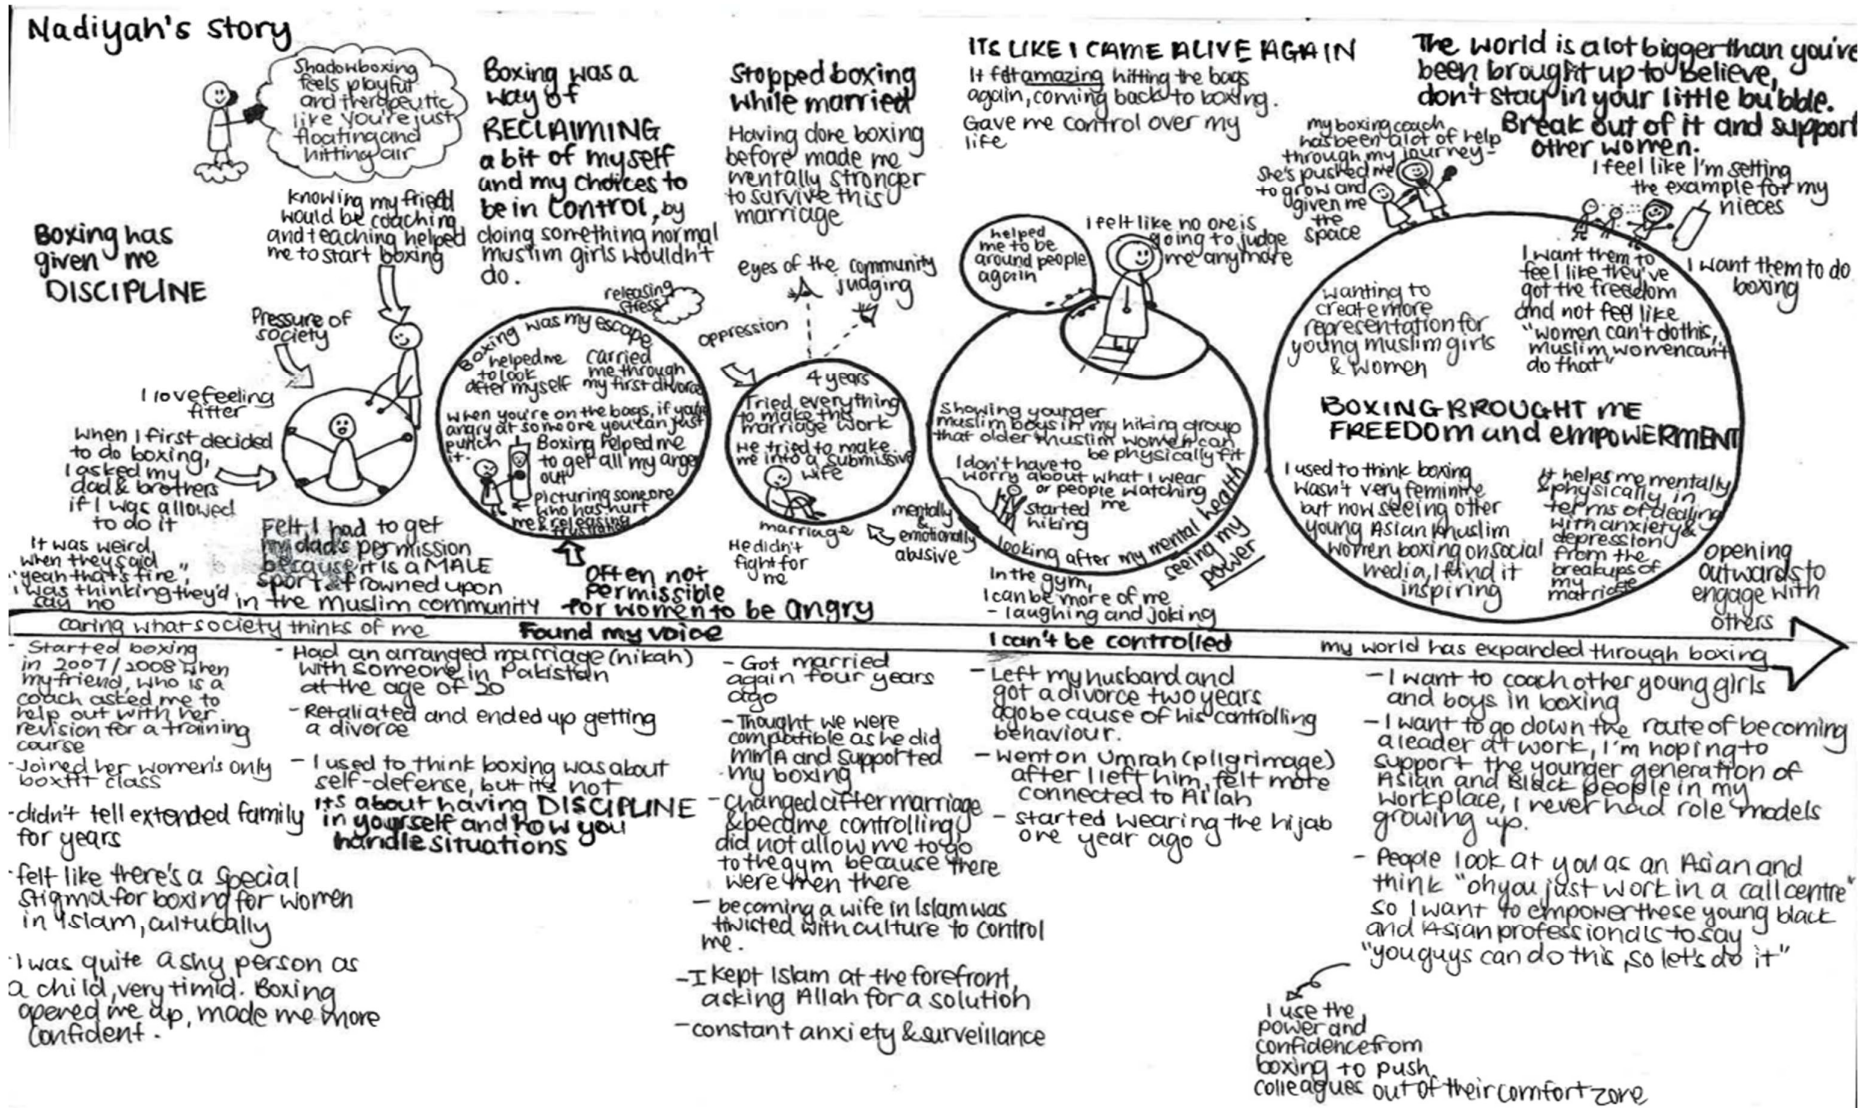 Nadiyah's story
Shadowboxing
feels playful
and therapeutic
like you're just
floating and
hitting air
Boxing has
given me
DISCIPLINE
knowing my friend
would be coaching
and teaching helped
me to start boxing
Pressure of
society
I love feeling
fitter
When I first decided
to do boxing,
I asked my
dad & brothers
if I was allowed
to do it
It was weird
when they said
"yeah that's fine",
I was thinking they'd
say no
Felt I had to get
my dad's permission
because it is a MALE
sport & frowned upon
in the muslim community
Boxing was a
way of
RECLAIMING
a bit of myself
and my choices to
be in control, by
doing something normal
muslim girls wouldn't
do.
releasing
stress
Boxing was my escape
helped me
to look
after myself
carried
me through
my first divorce
when you're on the bags, if you're
angry at someone you can just
punch
it.
Boxing helped me
to get all my anger
out
picturing someone
who has hurt
me & releasing
frustrations
Often not
permissible
for women to be angry
Stopped boxing
while married
Having done boxing
before made me
mentally stronger
to survive this
marriage
eyes of the community
judging
oppression
4 years
Tried everything
to make this
marriage work
He tried to make
me into a submissive
wife
marriage
He didn't
fight for
me
mentally
&
emotionally
abusive
ITS LIKE I CAME ALIVE AGAIN
It felt amazing hitting the bags
again, coming back to boxing.
Gave me control over my
life
helped
me to be
around people
again
I felt like no one is
going to judge
me anymore
Showing younger
muslim boys in my hiking group
that older muslim women can
be physically fit
I don't have to
worry about what I wear
or people watching
me
started
hiking
looking after my mental health
seeing my
power
In the gym,
I can be more of me
- laughing and joking
The world is a lot bigger than you've
been brought up to believe,
don't stay in your little bubble.
Break out of it and support
other women.
my boxing coach
has been a lot of help
through my journey-
She's pushed me
to grow and
given me
the
space
I feel like I'm setting
the example for my
nieces
I want them to do
boxing
wanting to
create more
representation for
young muslim girls
& women
I want them to
feel like they've
got the freedom
and not feel like
"women can't do this,
muslim women can't
do that"
BOXING BROUGHT ME
FREEDOM and EMPOWERMENT
I used to think boxing
wasn't very feminine
but now seeing other
young Asian Muslim
women boxing on social
media, I find it
inspiring
It helps me mentally
& physically in
terms of dealing
with anxiety &
depression
from the
breakups of
my
marriage
opening
outwards to
engage with
others
caring what society thinks of me
Found my voice
I can't be controlled
my world has expanded through boxing
- Started boxing
in 2007/2008 when
my friend, who is a
coach asked me to
help out with her
revision for a training
course
- Joined her women's only
boxfit class
- didn't tell extended family
for years
- felt like there's a special
stigma for boxing for women
in Islam, culturally
- I was quite a shy person as
a child, very timid. Boxing
opened me up, made me more
confident.
- Had an arranged marriage (nikah)
with someone in Pakistan
at the age of 20
- Retaliated and ended up getting
a divorce
- I used to think boxing was about
self-defense, but it's not
its about having DISCIPLINE
in yourself and how you
handle situations
- Got married
again four years
ago
- Thought we were
compatible as he did
MMA and supported
my boxing
- changed after marriage
& became controlling
did not allow me to go
to the gym because there
were men there
- becoming a wife in Islam was
twisted with culture to control
me.
- I kept Islam at the forefront,
asking Allah for a solution
- constant anxiety & surveillance
- Left my husband and
got a divorce two years
ago because of his controlling
behaviour.
- went on Umrah (pilgrimage)
after I left him, felt more
connected to Allah
- started wearing the hijab
one year ago
- I want to coach other young girls
and boys in boxing
- I want to go down the route of becoming
a leader at work, I'm hoping to
support the younger generation of
Asian and Black people in my
workplace, I never had role models
growing up.
- People look at you as an Asian and
think "oh you just work in a call centre"
so I want to empower these young black
and Asian professionals to say
"you guys can do this, so let's do it"
I use the
power and
confidence from
boxing to push
colleagues out of their comfort zone